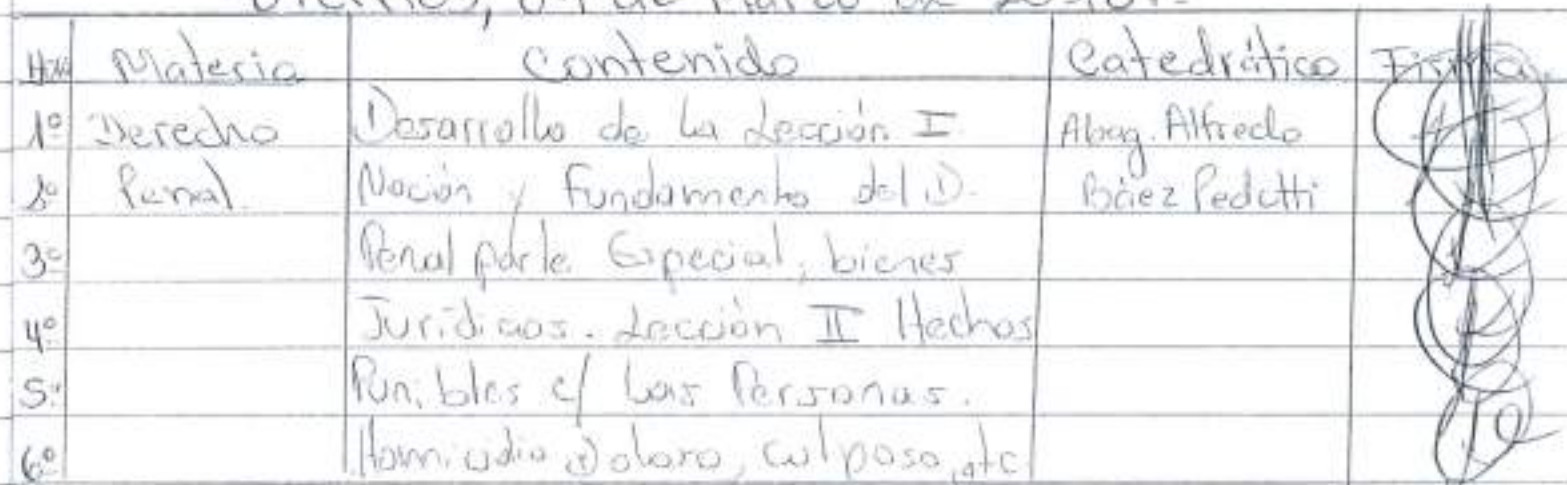 Viernes, 04 de Marzo de
Hora Materia Contenido Catedrático Firma
1º Derecho Desarrollo de la Lección I Abog. Alfredo
2º Penal. Noción y Fundamento del D. Báez Pedotti
3º Penal parte Especial, bienes
4º Jurídicos. Lección II Hechos
5º Punibles c/ las Personas.
6º Homicidio Doloso, Culposo, etc